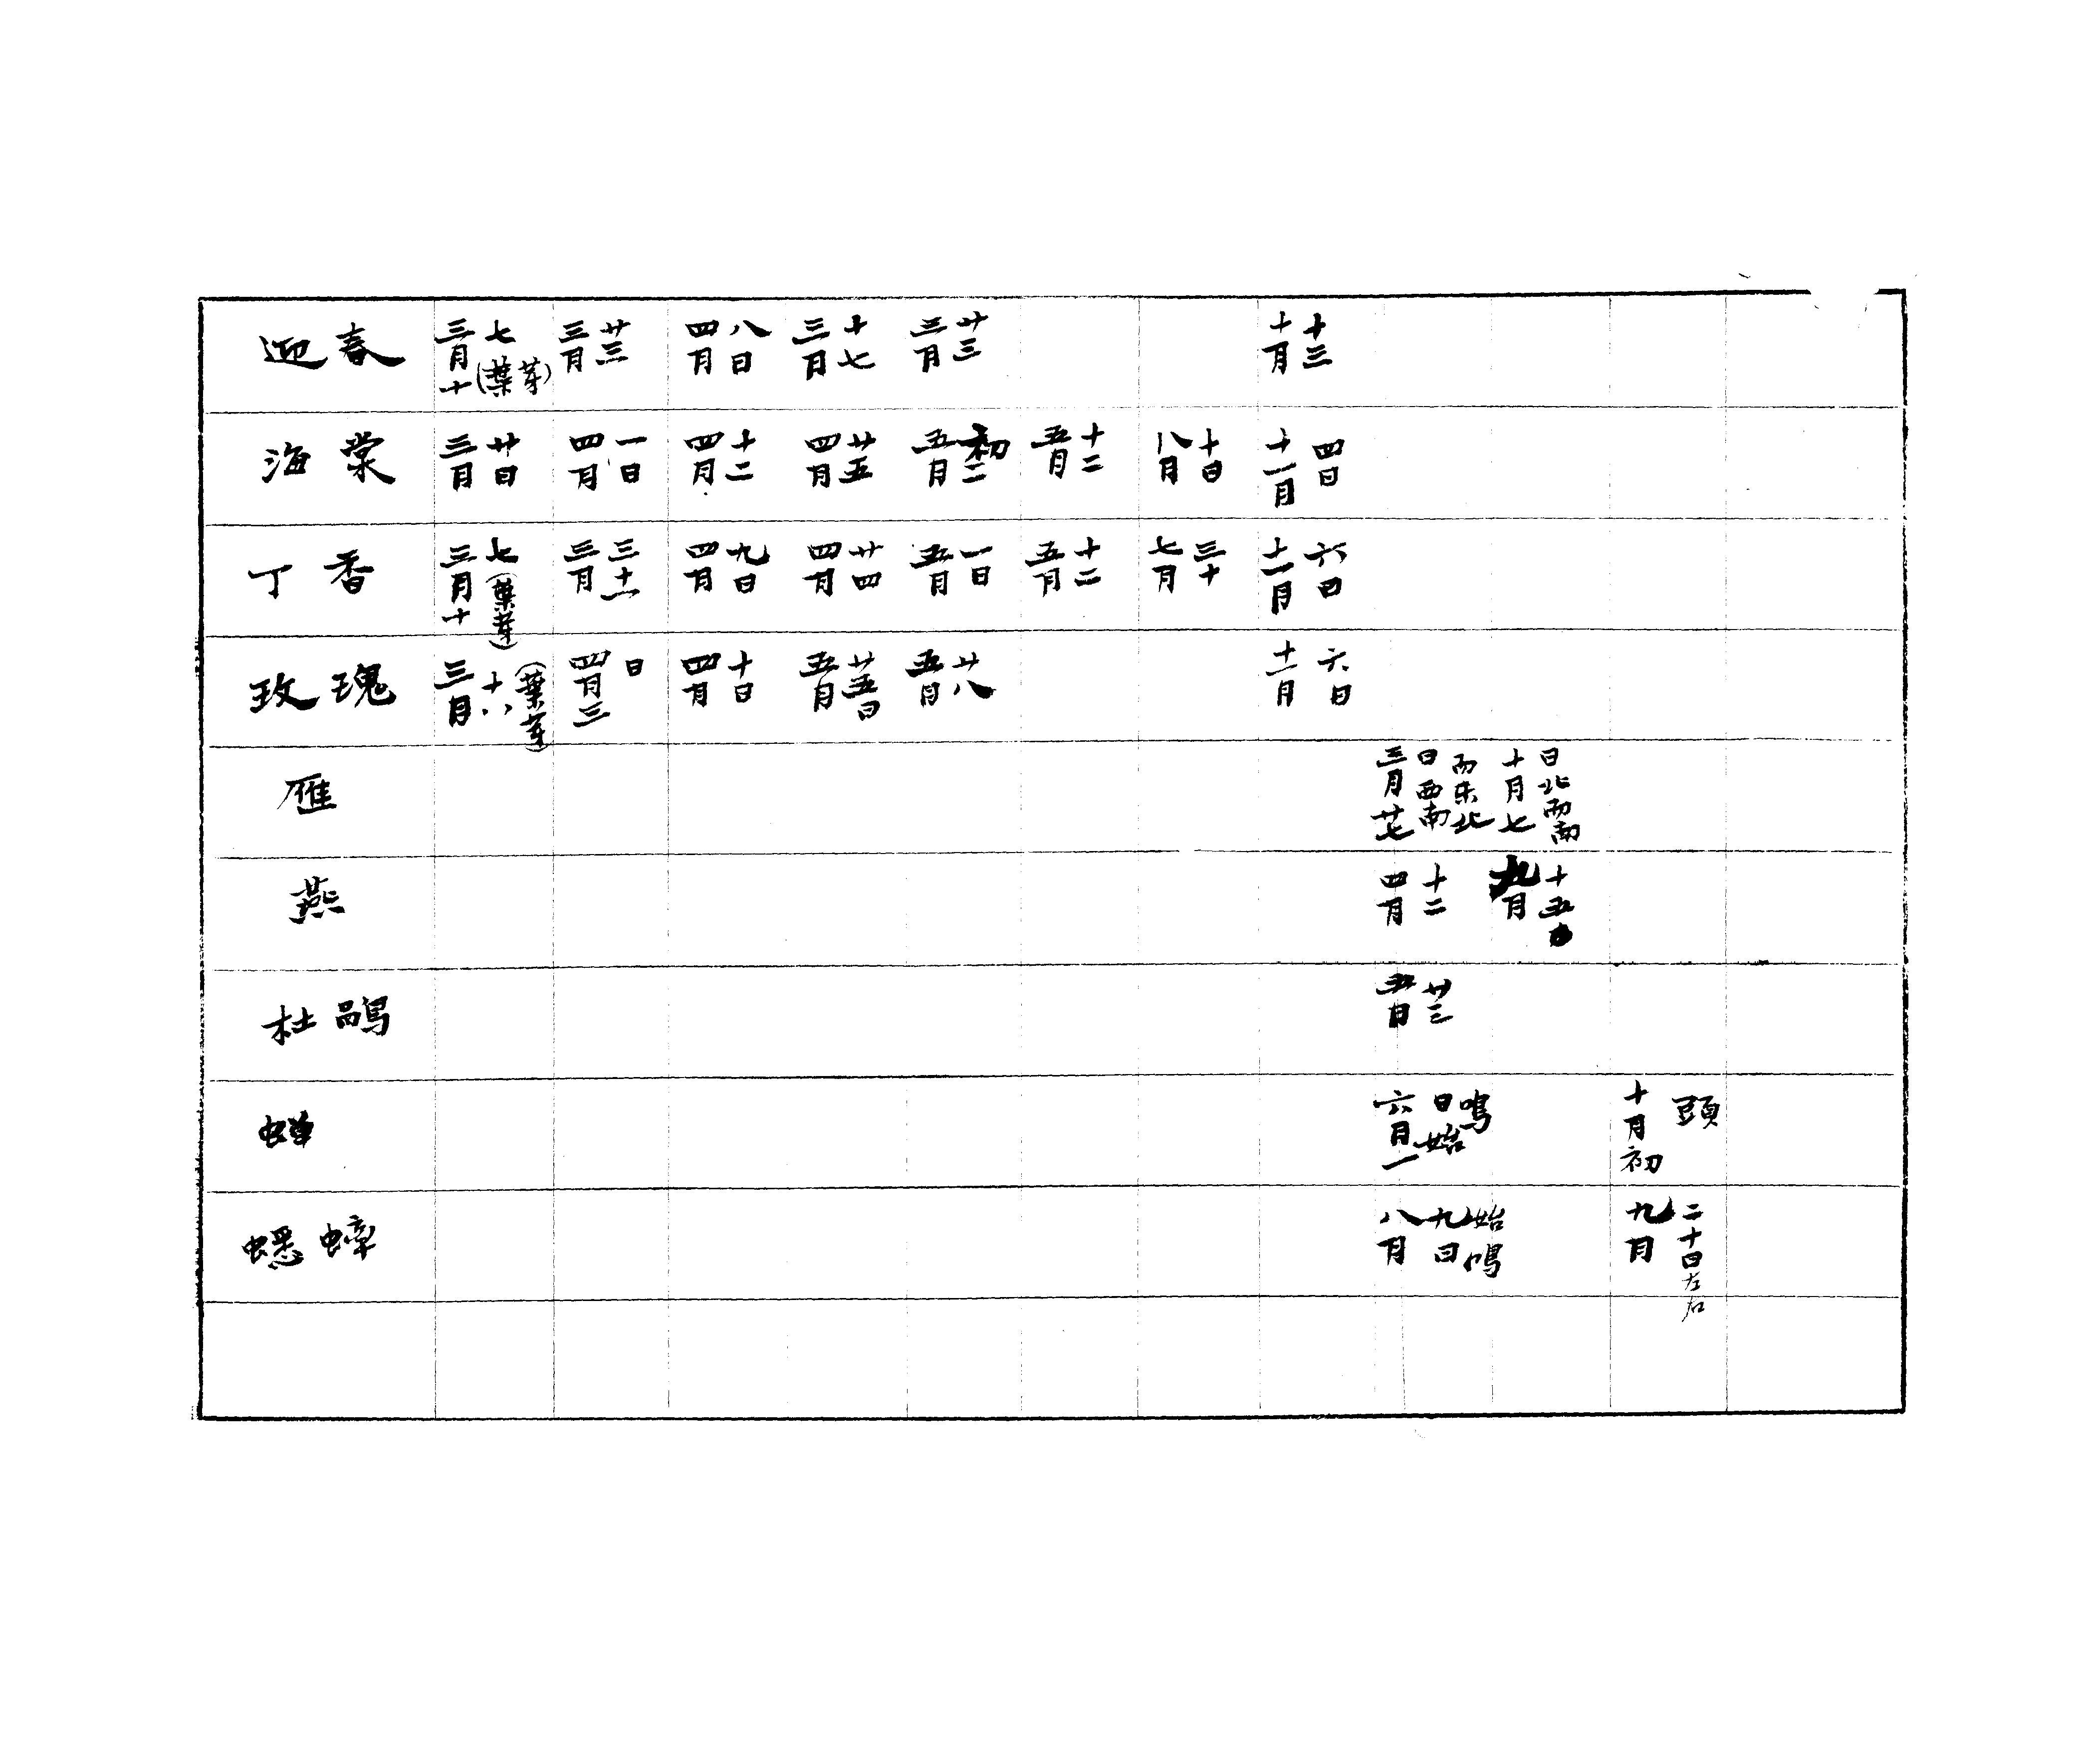 迎春 三月十七(葉芽) 三月廿三 四月八日 三月十七 三月廿三 十月十三
海棠 三月廿日 四月一日 四月十二 四月廿五 五月初二 五月十二 八月十日 十一月四日
丁香 三月十七(葉芽) 三月三十一 四月九日 四月廿四 五月一日 五月十二 七月三十 十一月六日
玫瑰 三月十八(葉芽) 四月三日 四月十日 五月廿五日 五月廿八 十一月六日
雁 三月廿七日西南而东北 十月七日北而南
燕 四月十二 九月十五日
杜鹃 五月廿三
蝉 六月一日始鳴 十月初頭
蟋蟀 八月九日始鳴 九月二十日左右